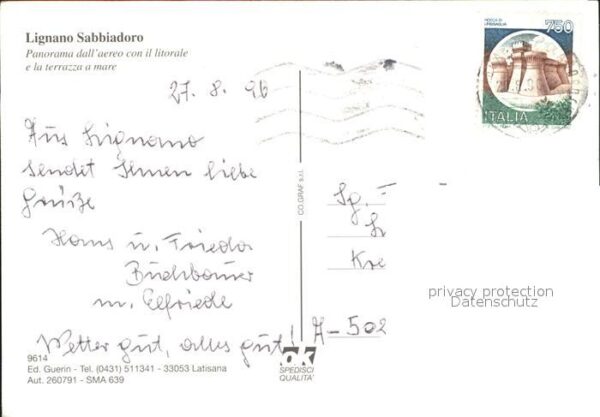 Lignano Sabbiadoro
Panorama dall'aereo con il litorale
e la terrazza a mare
ROCCA DI
URBISAGLIA
750
ITALIA
27. 8. 96
Aus Lignano
sendet Ihnen liebe
Grüße
Hans u. Frieda
Buchbauer
u. Elfriede
Wetter gut, alles gut!
CO.GRAF s.r.l.
Sg.
Kre
A-502
privacy protection
Datenschutz
9614
Ed. Guerin - Tel. (0431) 511341 - 33053 Latisana
Aut. 260791 - SMA 639
ok
SPEDISCI
QUALITA'